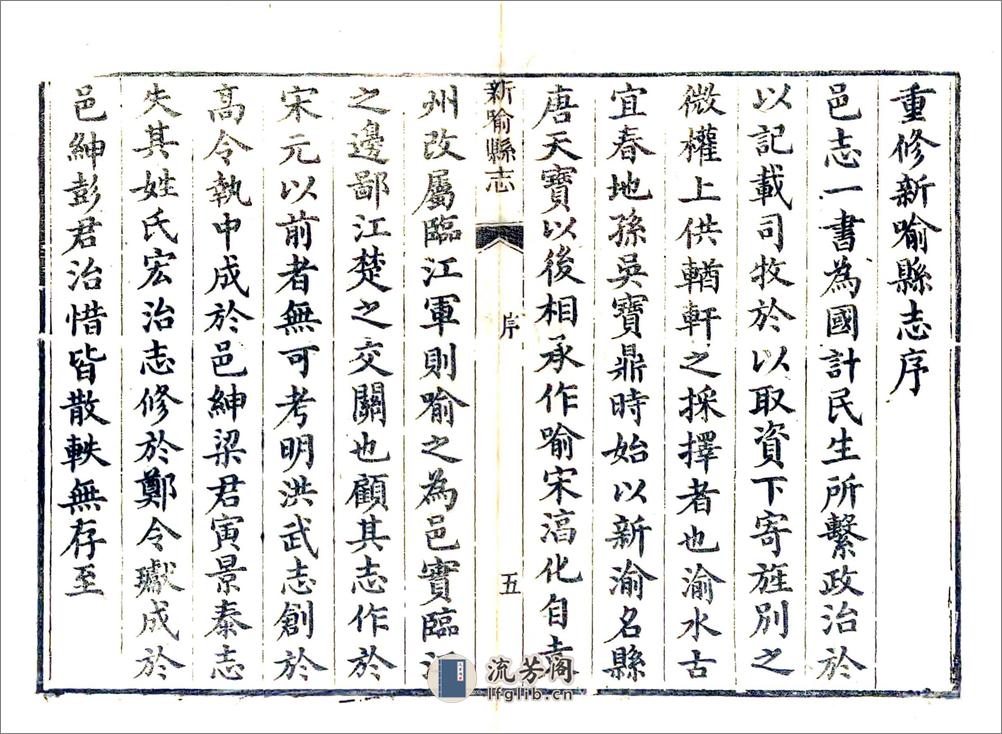 重修新喻縣志序
邑志一書為國計民生所繫政治於
以記載司牧於以取資下寄旌別之
微權上供輶軒之採擇者也渝水古
宜春地孫吳寶鼎時始以新渝名縣
唐天寶以後相承作喻宋淳化自
新喻縣志
序
五
州改屬臨江軍則喻之為邑實臨
之邊鄙江楚之交關也顧其志作於
宋元以前者無可考明洪武志創於
高令執中成於邑紳梁君寅景泰志
失其姓氏宏治志修於鄭令瓛成於
邑紳彭君治惜皆散軼無存至
流芳阁
lfglib.cn